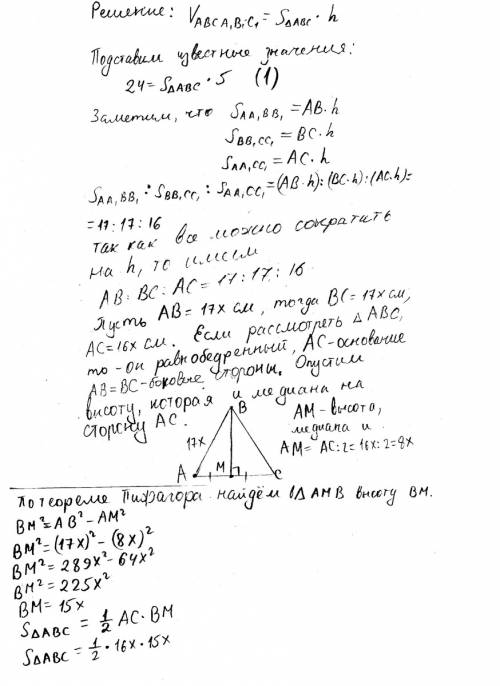 Решение: VABCA₁B₁C₁ = SΔABC · h
Подставим известные значения:
24 = SΔABC · 5 (1)
Заметим, что SAA₁BB₁ = AB · h
SBB₁CC₁ = BC · h
SAA₁CC₁ = AC · h
SAA₁BB₁ : SBB₁CC₁ : SAA₁CC₁ = (AB · h) : (BC · h) : (AC · h) =
= 17 : 17 : 16
так как все можно сократить
на h, то имеем
AB : BC : AC = 17 : 17 : 16
Пусть AB = 17x см, тогда BC = 17x см,
AC = 16x см. Если рассмотреть Δ ABC,
то - он равнобедренный, AC - основание
AB = BC - боковые стороны. Опустим
высоту, которая и медиана на
сторону AC.
B
AM - высота,
медиана и
AM = AC : 2 = 16x : 2 = 8x
17x
A M C
По теореме Пифагора найдём в Δ AMB высоту BM.
BM² = AB² - AM²
BM² = (17x)² - (8x)²
BM² = 289x² - 64x²
BM² = 225x²
BM = 15x
SΔABC = 1/2 AC · BM
SΔABC = 1/2 · 16x · 15x